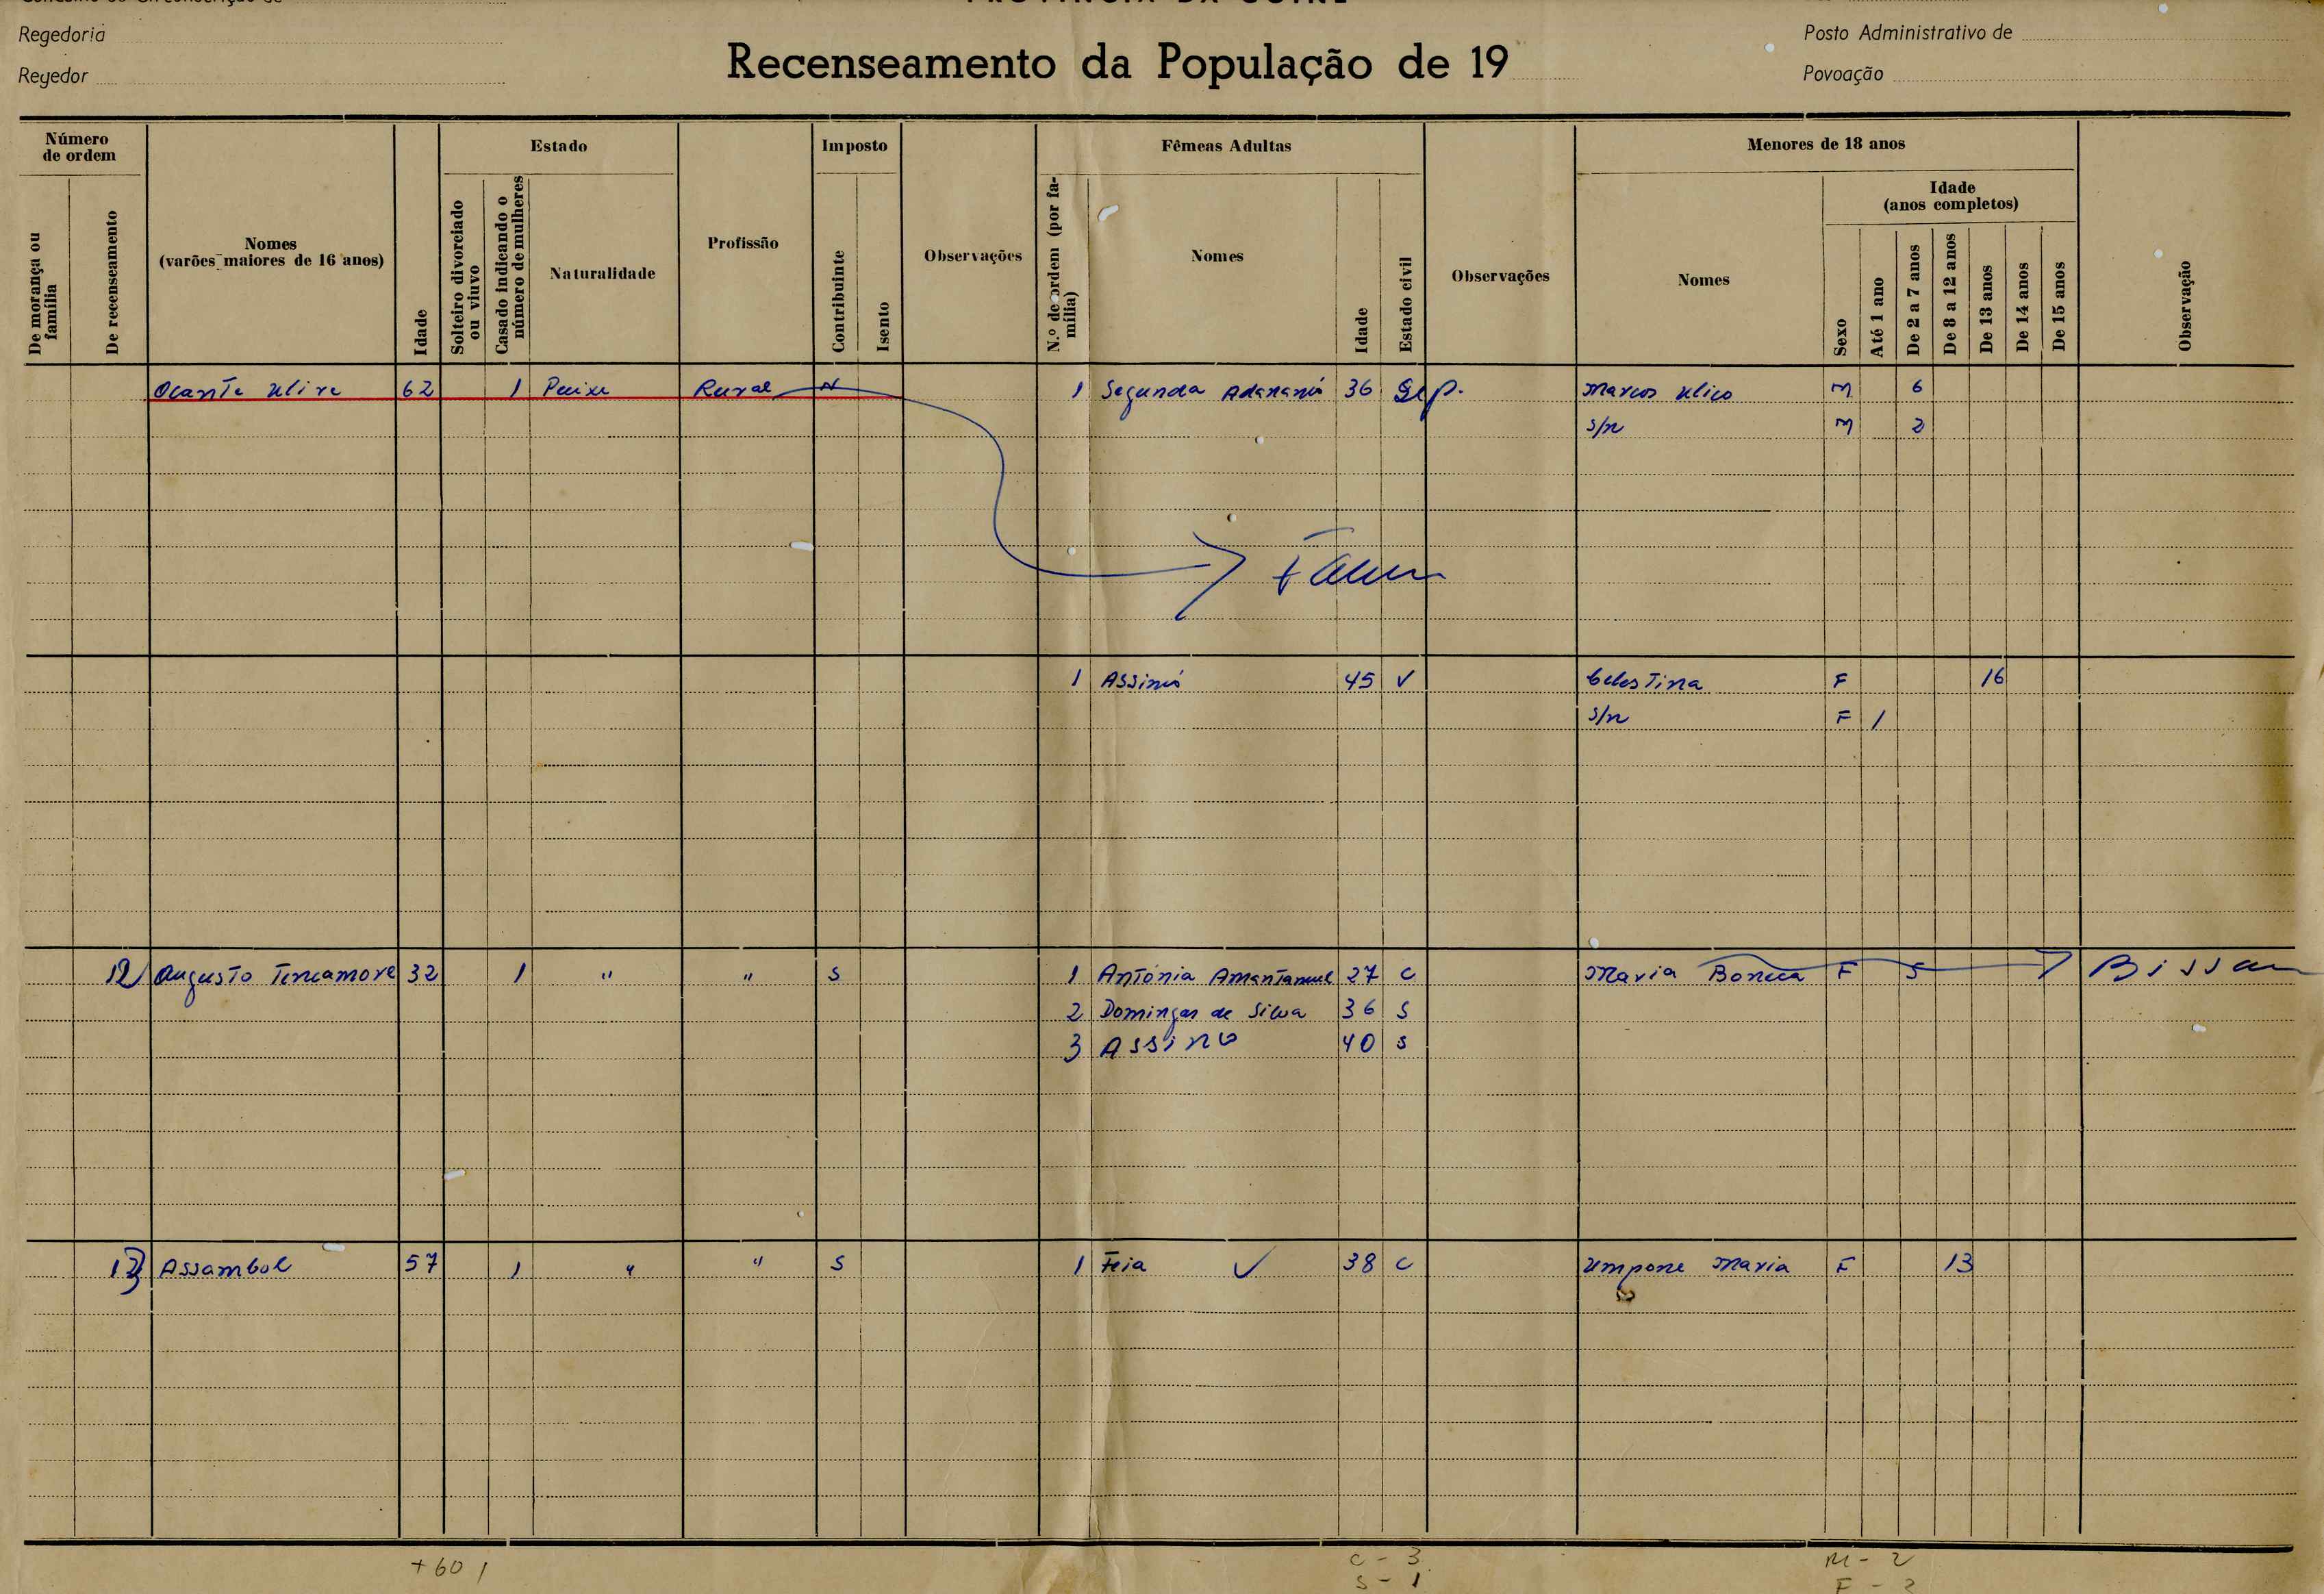 PROVÍNCIA DA GUINÉ
Regedoria
Regedor
Recenseamento da População de 19
Posto Administrativo de
Povoação
Número de ordem
De morança ou família
De recenseamento
Nomes
(varões maiores de 16 anos)
Idade
Estado
Solteiro divorciado ou viuvo
Casado indicando o número de mulheres
Naturalidade
Profissão
Imposto
Contribuinte
Isento
Observações
Fêmeas Adultas
N.º de ordem (por família)
Nomes
Idade
Estado civil
Observações
Menores de 18 anos
Nomes
Sexo
Idade
(anos completos)
Até 1 ano
De 2 a 7 anos
De 8 a 12 anos
De 13 anos
De 14 anos
De 15 anos
Observação
Ocante 62 1 Rural 1 Segunda 36 Sep. Marcos M 6
s/n M 2
1 Assinó 45 V Celestina F 16
s/n F 1
12 Augusto 32 1 " " S 1 Antónia 27 C Maria Boneca F 5 Bissau
2 Domingas de Silva 36 S
3 Assino 40 S
13 Assambol 57 1 " " S 1 Feia 38 C Umpone Maria F 13
+60 1
C - 3
S - 1
M - 2
F - 2